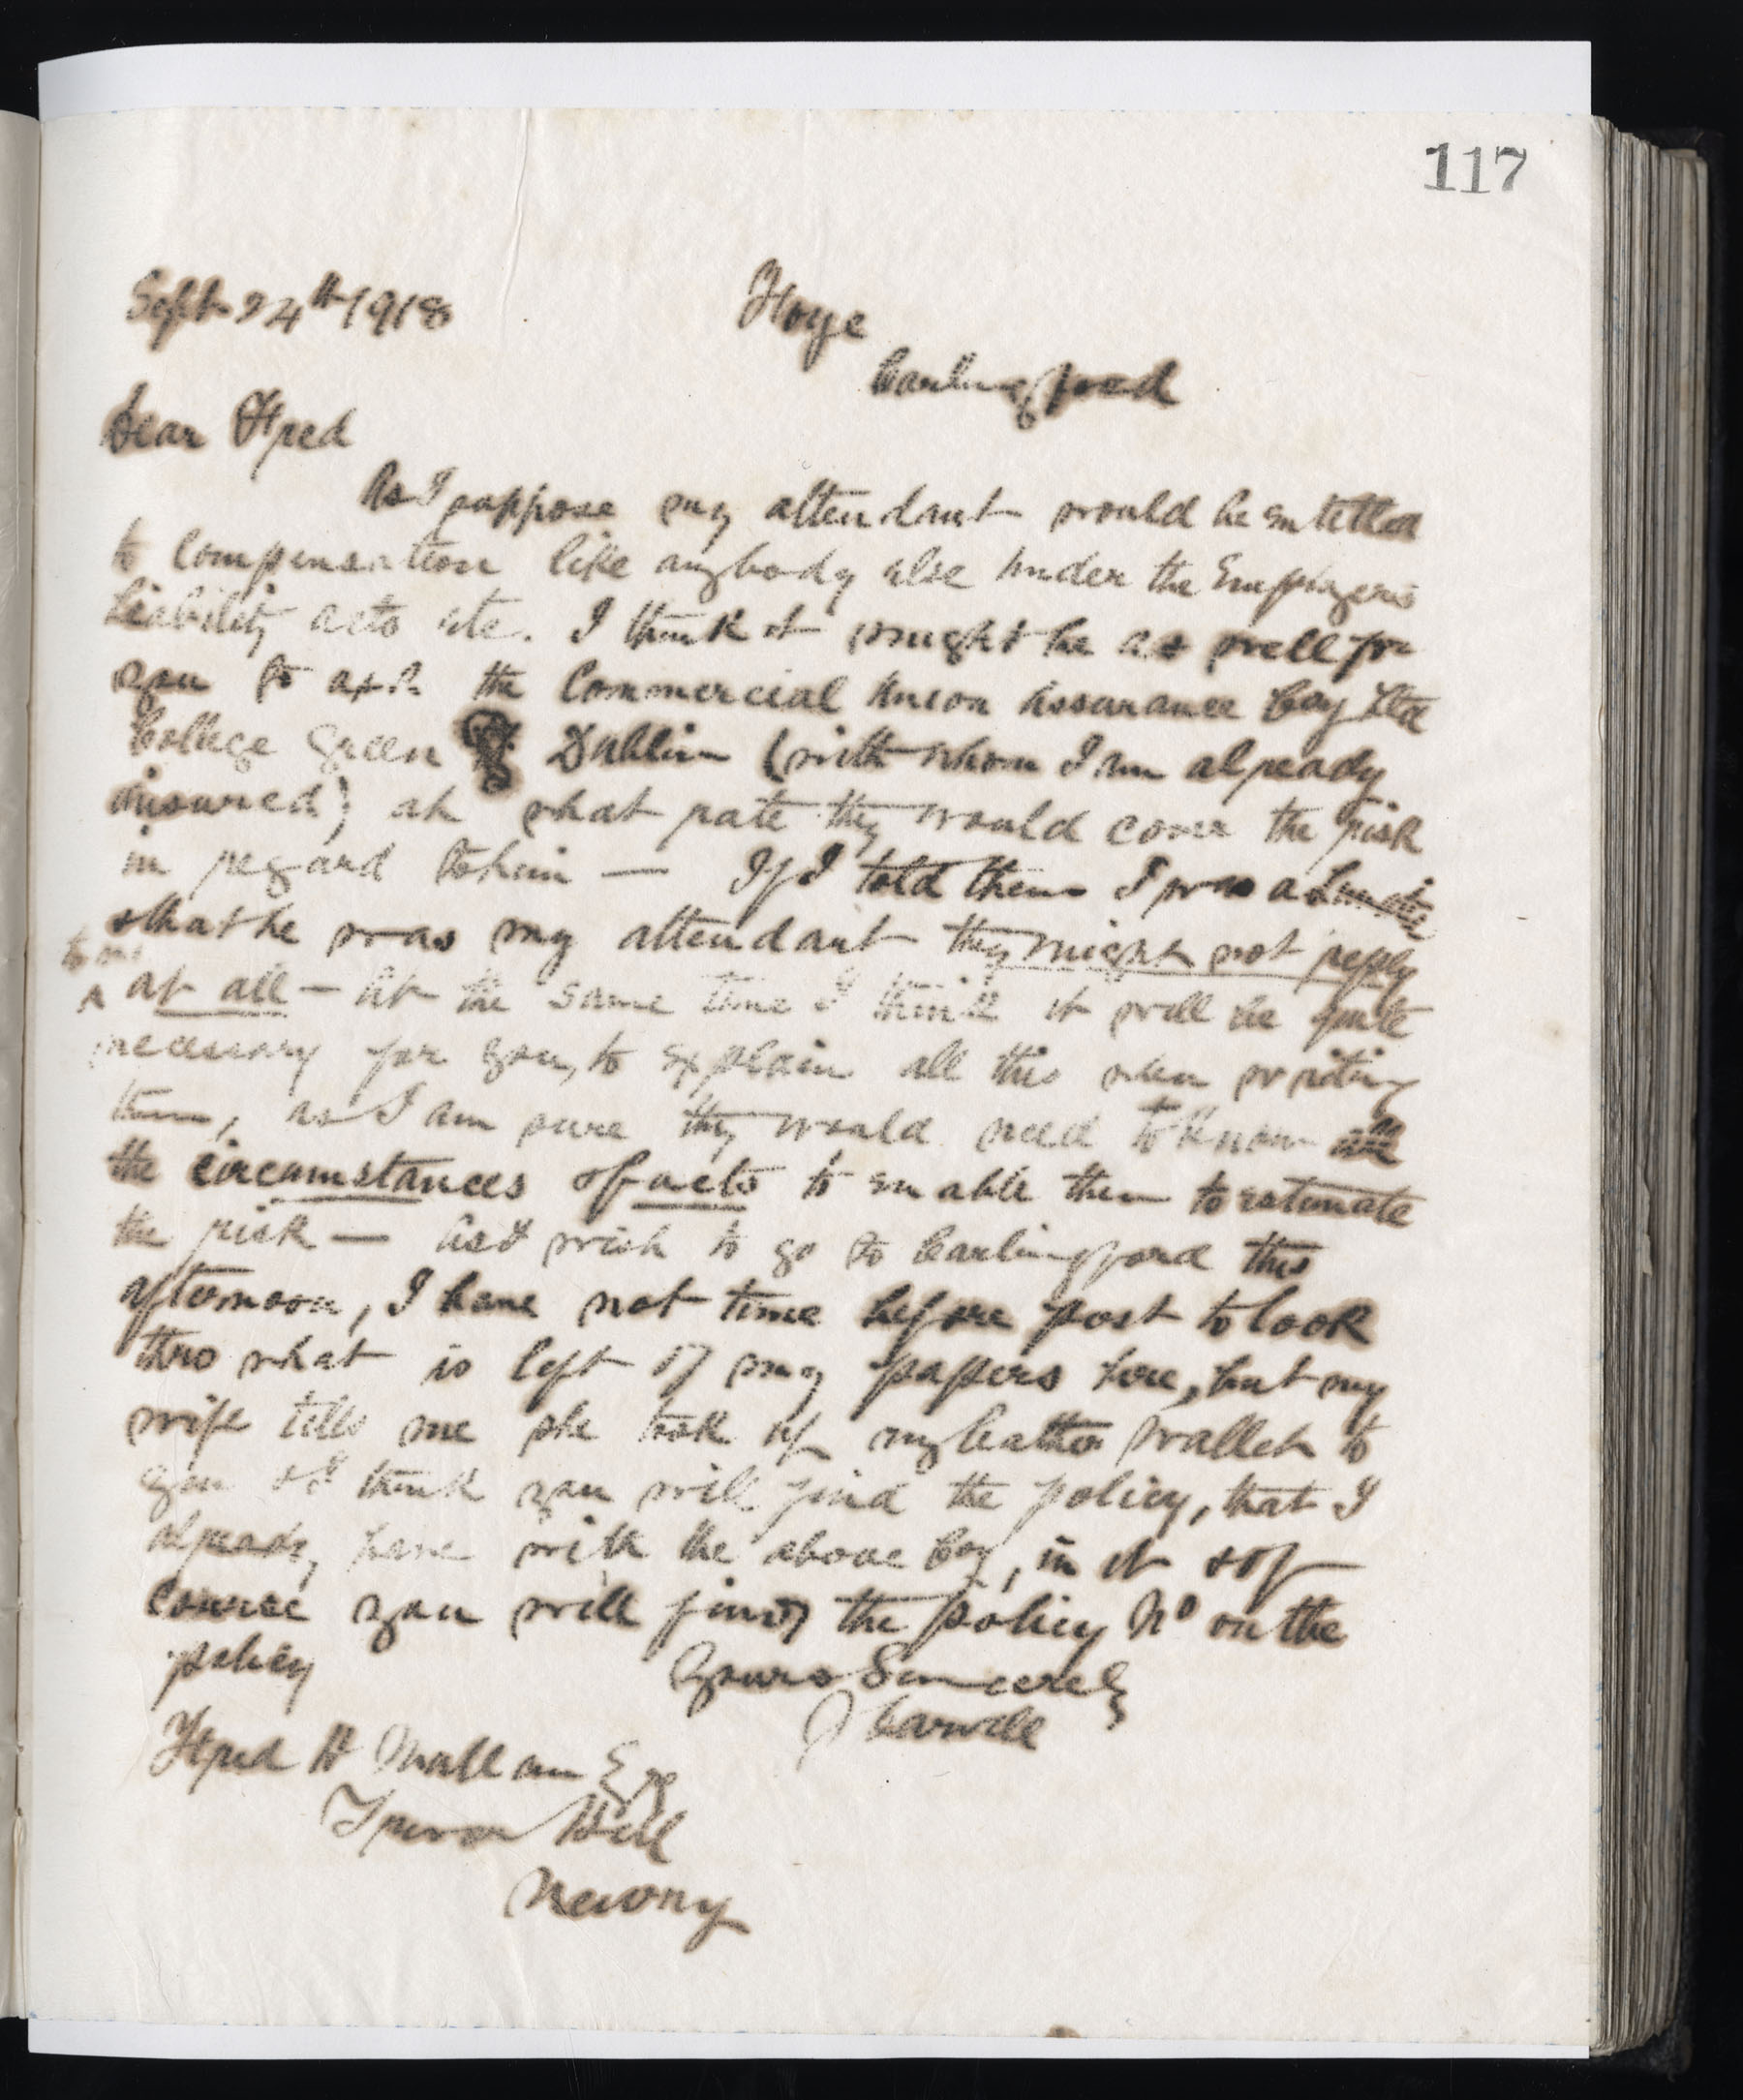 117
Sept 24th 1918 Foye
Carlingford
Dear Fred
As I suppose my attendant would be entitled
to compensation like anybody else under the Employers
Liability acts etc. I think it might be as well for
you to ask the Commercial Union Assurance Coy Ltd
College Green Dublin (with whom I am already
insured) at what rate they would cover the risk
in regard to him — If I told them I was a Lunatic
& that he was my attendant they might not reply
to me
at all — At the same time I think it will be quite
necessary for you, to explain all this when writing
them, as I am sure they would need to know
the circumstances & facts to enable them to estimate
the risk — As I wish to go to Carlingford this
afternoon, I have not time before post to look
thro what is left of my papers here, but my
wife tells me she took up my leather wallet to
you & I think you will find the policy, that I
already have with the above Coy, in it & of
course you will find the policy No on the
policy
Yours Sincerely
J Carvill
Fred H Mallam Esq
Trevor Hill
Newry